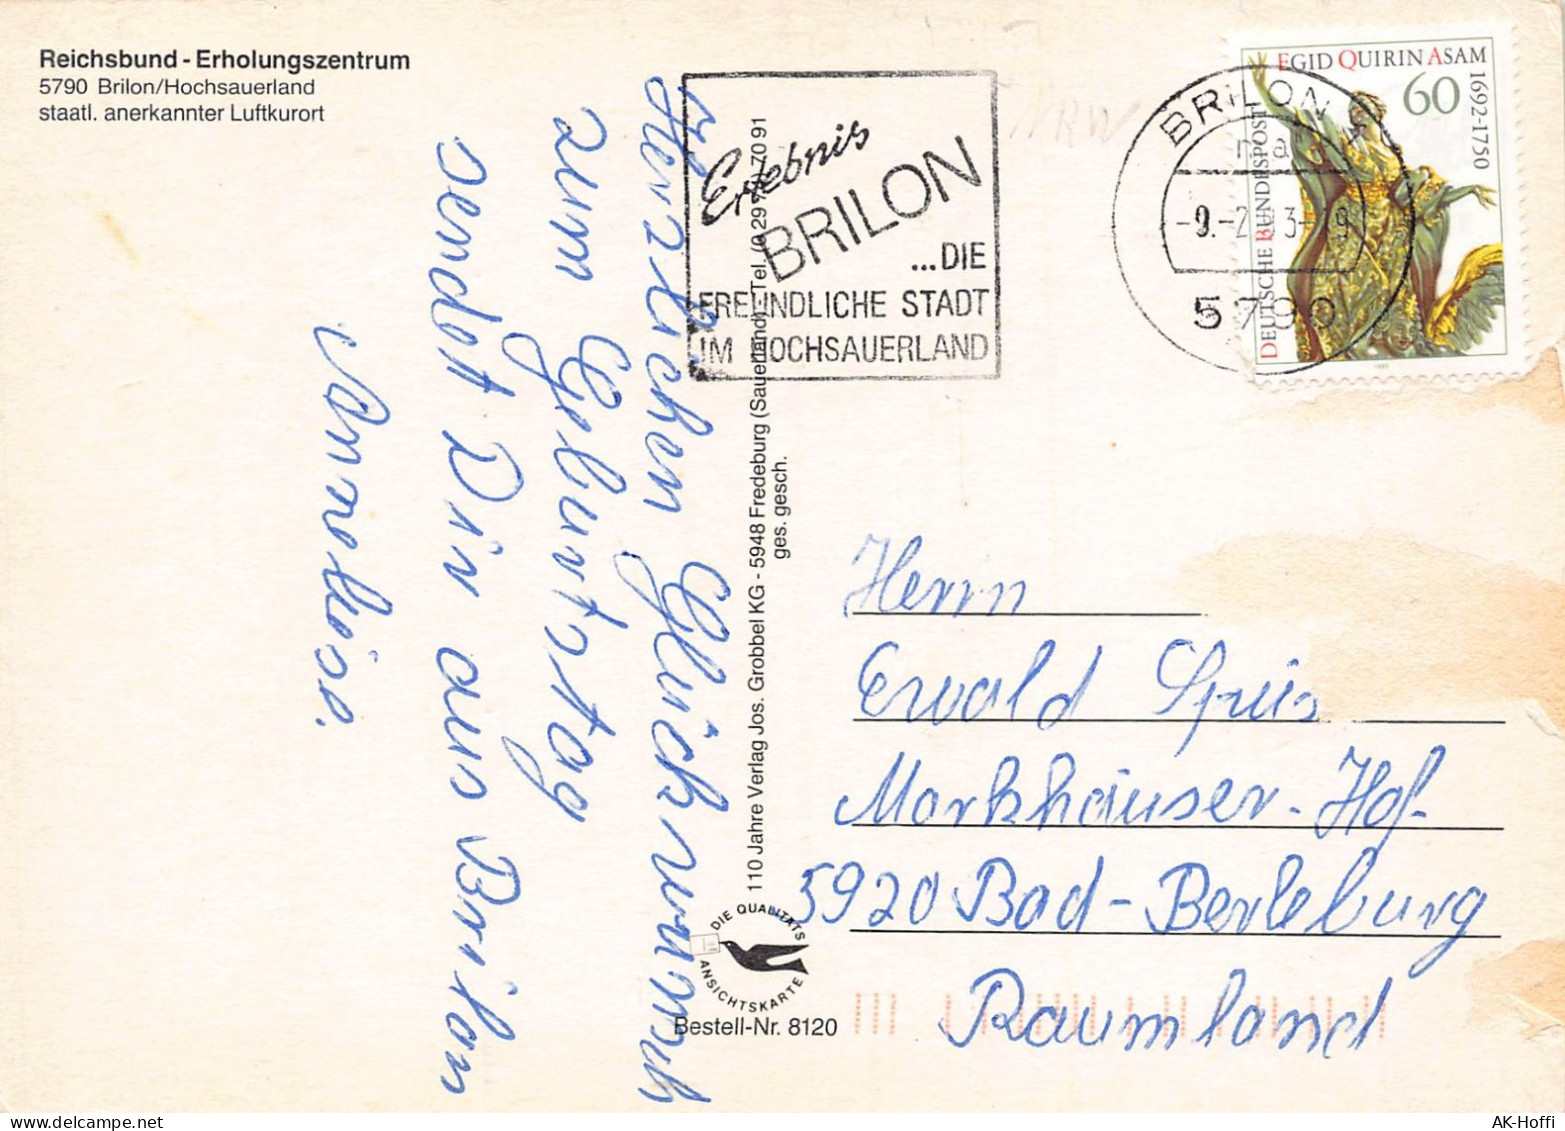 Reichsbund - Erholungszentrum
5790 Brilon/Hochsauerland
staatl. anerkannter Luftkurort
Herzlichen Glückwunsch
zum Geburtstag
sendet Dir aus Brilon
Annelies.
110 Jahre Verlag Jos. Grobbel KG - 5948 Fredeburg (Sauerland) - Tel. (0 29 70 91
ges. gesch.
Erlebnis
BRILON
...DIE
FREUNDLICHE STADT
IM HOCHSAUERLAND
BRILON
5790
EGID QUIRIN ASAM
1692-1750
60
DEUTSCHE BUNDESPOST
Herrn
Ewald
Markhäuser-Hof-
5920 Bad-Berleburg
Raumland
DIE QUALITÄTS
ANSICHTSKARTE
Bestell-Nr. 8120
AK-Hoffi